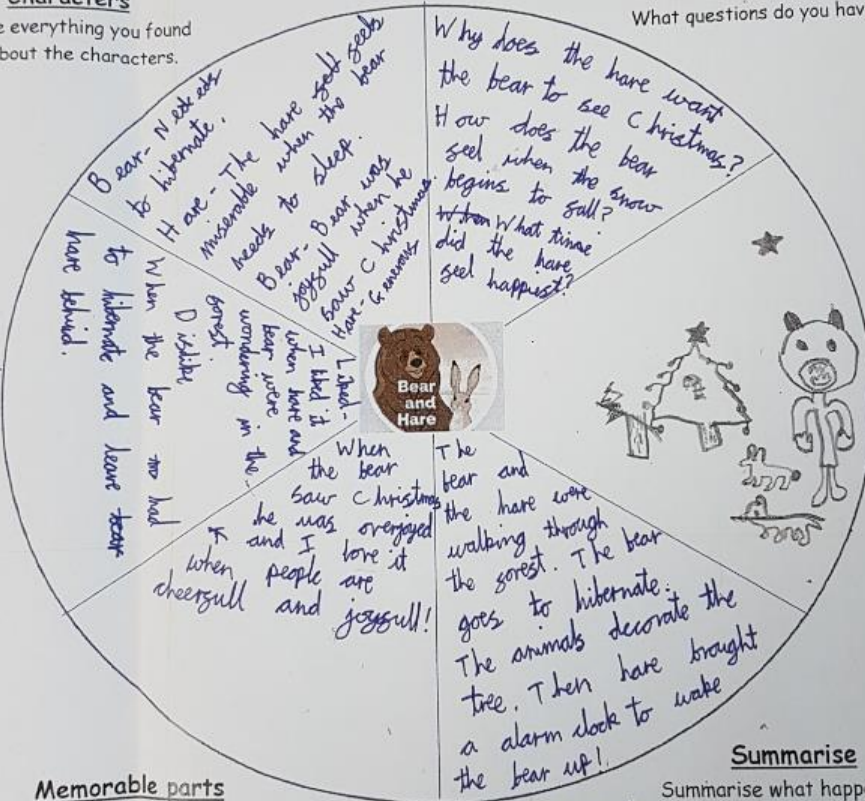 Characters
e everything you found
bout the characters.
What questions do you hav
Bear- Needs
to hibernate.
Hare - The hare self seels
miserable when the bear
needs to sleep.
Bear- Bear was
joysull when he
saw Christmas.
Hare- Generous
Why does the hare want
the bear to see Christmas?
How does the bear
seel when the snow
begins to sall?
When What time
did the hare
seel happiest?
Liked-
I liked it
when hare and
bear were
wondering in the
sorest.
Dislike
When the bear had
to hibernate and leave bear
hare behind.
Bear
and
Hare
When
the bear
saw Christmas
he was overjoyed
and I love it
when people are
cheersull and joysull!
The
bear and
the hare were
walking through
the sorest. The bear
goes to hibernate.
The animals decorate the
tree. Then hare brought
a alarm clock to wake
the bear up!
Memorable parts
Summarise
Summarise what happ